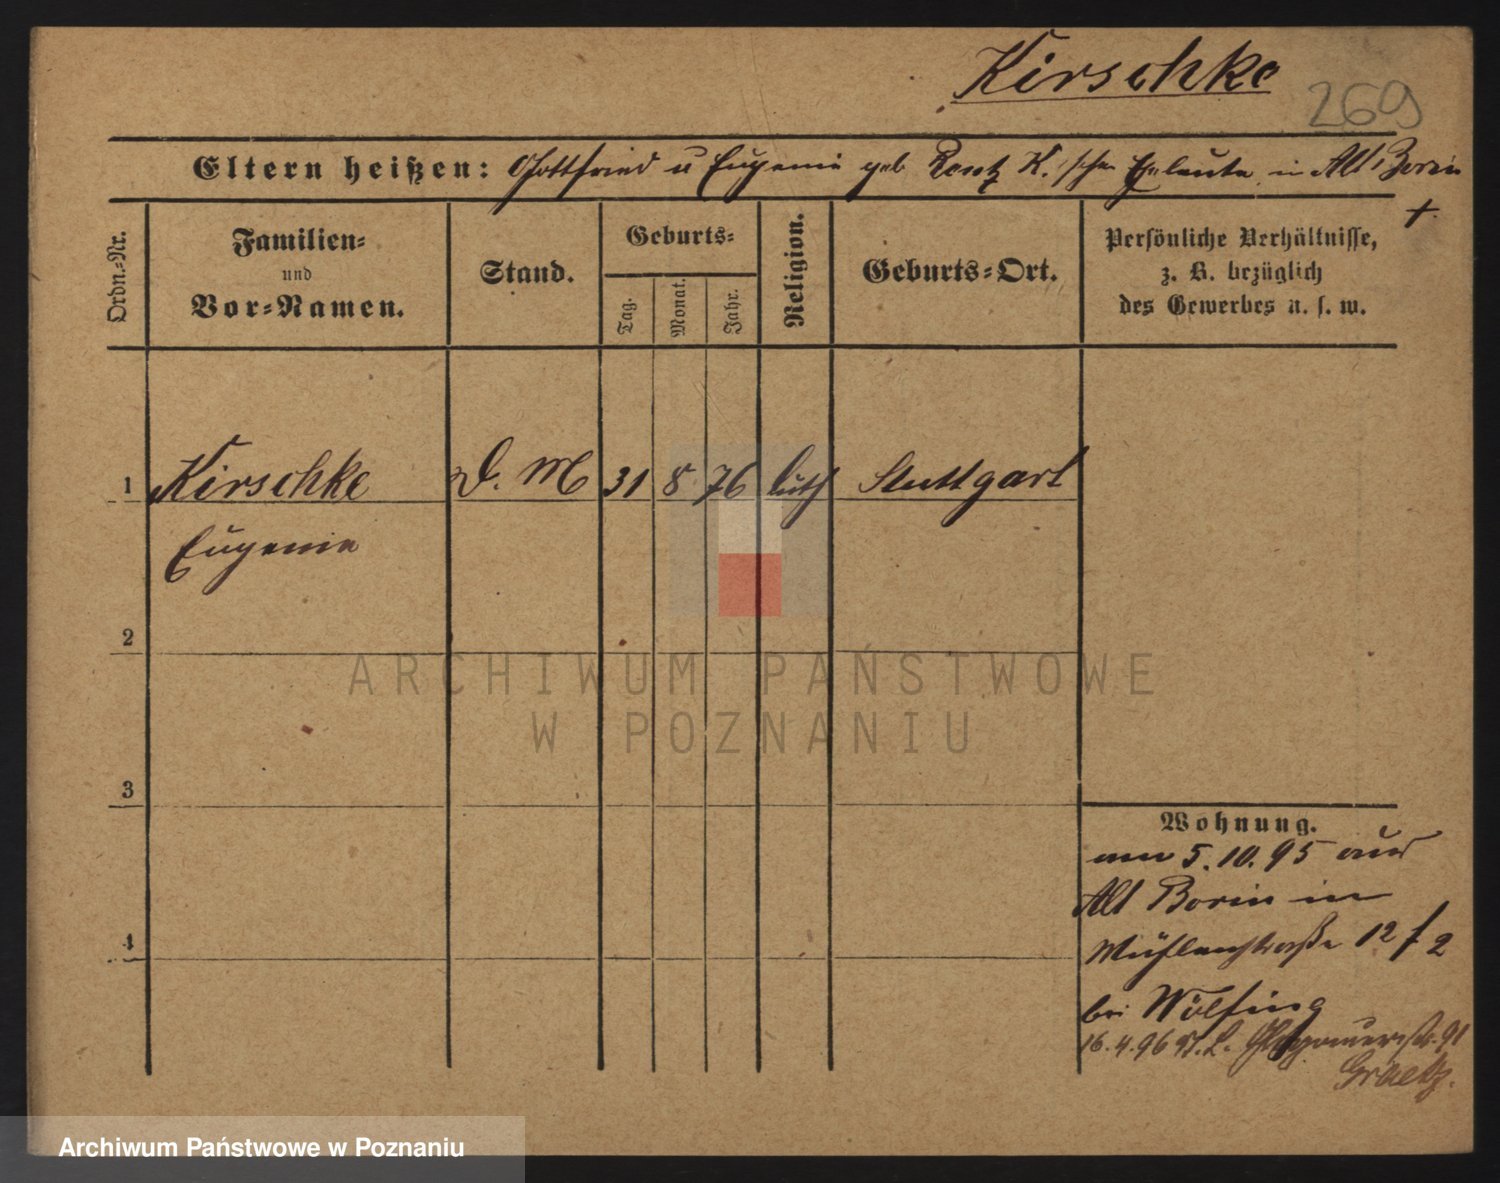 Kirschke
269
Eltern heißen: Gottfried u Eugenie geb. K.'schen Eheleute in Alt Borin
+
Ordn.-Nr.
Familien-
und
Vor-Namen.
Stand.
Geburts-
Tag.
Monat.
Jahr.
Religion.
Geburts-Ort.
Persönliche Verhältnisse,
z. B. bezüglich
des Gewerbes u. s. w.
1 Kirschke D. M 31 8 76 luth Stuttgart
Eugenie
2
ARCHIWUM PAŃSTWOWE
W POZNANIU
3
4
Wohnung.
am 5.10.95 aus
Alt Borin in
Mühlenstraße 12 f 2
bei Wölfing
16.4.96 St. L. Glogauerstr. 91
Graetz.
Archiwum Państwowe w Poznaniu